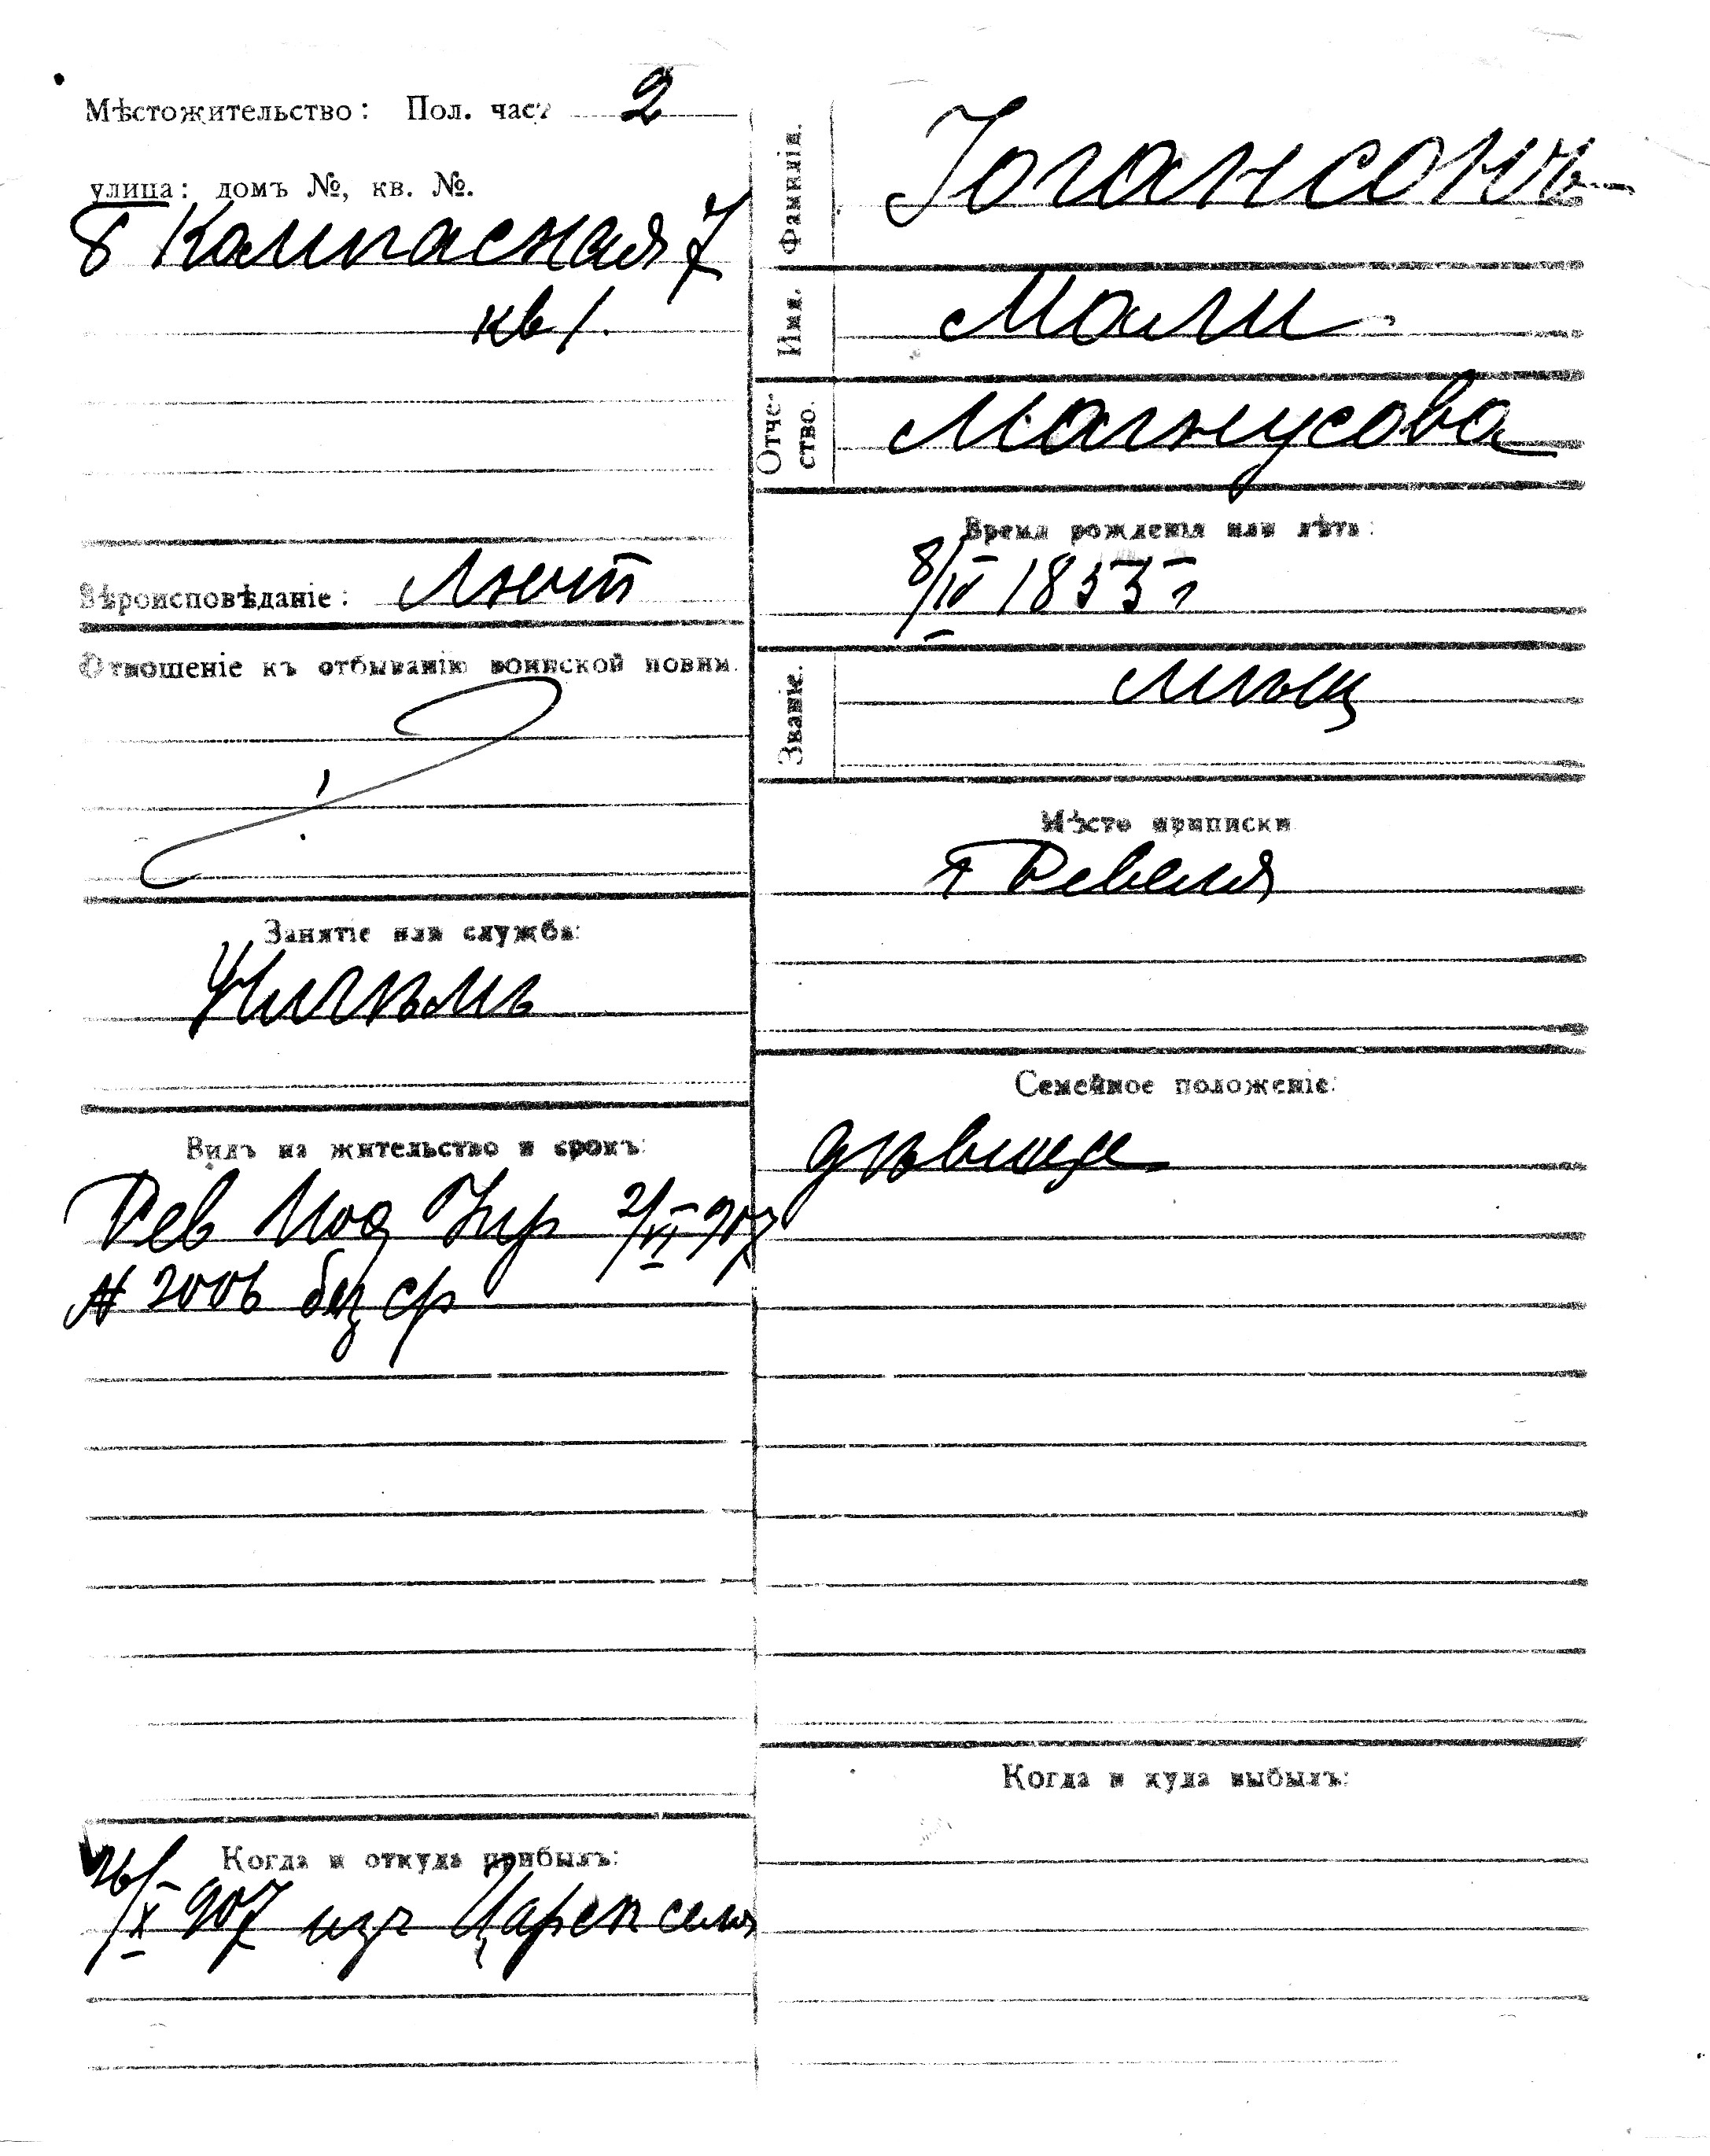 Мѣстожительство: Пол. част 2
улица: домъ №, кв. №.
Б Компасная 7
кв 1.
Вѣроисповѣданіе: Лют
Отношеніе къ отбыванію воинской повин.
Занятіе или служба:
Видъ на жительство и срокъ:
Рев Мѣщ Упр 2/VI 907
№ 2006 без ср
Когда и откуда прибылъ:
26/IX 907 изъ Царск села
Фамилія. Іогансонъ
Имя. Мали
Отчество. Магнусова
Время рожденія или лѣта:
8/IV 1853 г
Званіе. мѣщ
Мѣсто приписки
г Ревеля
Семейное положеніе:
дѣвица
Когда и куда выбылъ: